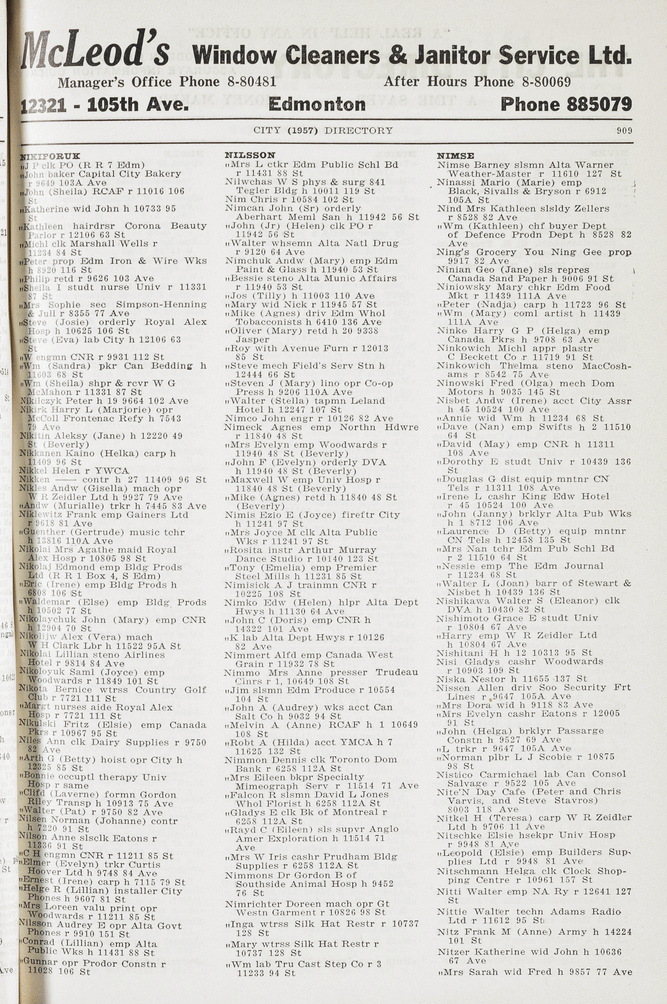 McLeod's Window Cleaners & Janitor Service Ltd.
Manager's Office Phone 8-80481 After Hours Phone 8-80069
12321 - 105th Ave. Edmonton Phone 885079
CITY (1957) DIRECTORY 909
NIKIFORUK
„J P elk PO (R R 7 Edm)
„John baker Capital City Bakery
r 9649 103A Ave
„John (Sheila) RCAF r 11016 106
St
„Katherine wid John h 10733 95
St
„Kathleen hairdrsr Corona Beauty
Parlor r 12106 63 St
„Michl clk Marshall Wells r
11234 84 St
„Peter prop Edm Iron & Wire Wks
h 8920 116 St
„Philip retd r 9626 103 Ave
„Sheila I studt nurse Univ r 11331
87 St
„Mrs Sophie sec Simpson-Henning
& Jull r 8355 77 Ave
„Steve (Josie) orderly Royal Alex
Hosp h 10625 106 St
„Steve (Eva) lab City h 12106 63
St
„W engmn CNR r 9931 112 St
„Wm (Sandra) pkr Can Bedding h
11603 68 St
„Wm (Sheila) shpr & rcvr W G
McMahon r 11331 87 St
Nikiczyk Peter h 19 9664 102 Ave
Nikirk Harry L (Marjorie) opr
McColl Frontenac Refy h 7543
79 Ave
Nikitin Aleksy (Jane) h 12220 49
St (Beverly)
Nikkanen Kaino (Helka) carp h
11409 96 St
Nikkel Helen r YWCA
Nikken —— contr h 27 11409 96 St
Nikles Andw (Gisella) mach opr
W R Zeidler Ltd h 9927 79 Ave
„Andw (Murialle) trkr h 7445 83 Ave
Niklewitz Frank emp Gainers Ltd
r 9618 81 Ave
„Guenther (Gertrude) music tchr
h 13816 110A Ave
Nikolai Mrs Agathe maid Royal
Alex Hosp r 10805 98 St
Nikolaj Edmond emp Bldg Prods
Ltd (R R 1 Box 4, S Edm)
„Eric (Irene) emp Bldg Prods h
6808 106 St
„Waldemar (Else) emp Bldg Prods
h 10502 77 St
Nikolaychuk John (Mary) emp CNR
h 12904 70 St
Nikolijw Alex (Vera) mach
W H Clark Lbr h 11522 95A St
Nikolai Lillian steno Airlines
Hotel r 9814 84 Ave
Nikoloyuk Saml (Joyce) emp
Woodwards r 11849 101 St
Nikota Bernice wtrss Country Golf
Club r 7721 111 St
„Margt nurses aide Royal Alex
Hosp r 7721 111 St
Nikulski Fritz (Elsie) emp Canada
Pkrs r 10967 95 St
Niles Ann clk Dairy Supplies r 9750
82 Ave
„Arth G (Betty) hoist opr City h
12325 85 St
„Bonnie occuptl therapy Univ
Hosp r same
„Cliffd (Laverne) formn Gordon
Riley Transp h 10913 75 Ave
„Walter (Pat) r 9750 82 Ave
Nilsen Norman (Johanne) contr
h 7220 91 St
Nilson Anne slsclk Eatons r
11536 71 St
„C H engmn CNR r 11211 85 St
„Elmer (Evelyn) trkr Curtis
Hoover Ltd h 9748 84 Ave
„Ernest (Irene) carp h 7115 79 St
„Helge R (Lillian) installer City
Phones h 9607 81 St
„Mrs Loreen valu print opr
Woodwards r 11211 85 St
Nilsson Audrey E opr Alta Govt
Phones r 9910 151 St
„Conrad (Lillian) emp Alta
Public Wks h 11431 88 St
„Gunnar opr Prodor Constn r
11028 106 St
NILSSON
„Mrs L ctkr Edm Public Schl Bd
r 11431 88 St
Nilwchas W S phys & surg 841
Tegler Bldg h 10011 119 St
Nim Chris r 10584 102 St
Nimcan John (Sr) orderly
Aberhart Meml San h 11942 56 St
„John (Jr) (Helen) clk PO r
11942 56 St
„Walter whsemn Alta Natl Drug
r 9120 64 Ave
Nimchuk Andw (Mary) emp Edm
Paint & Glass h 11940 53 St
„Bessie steno Alta Munic Affairs
r 11940 53 St
„Jos (Tilly) h 11003 110 Ave
„Mary wid Nick r 11945 57 St
„Mike (Agnes) driv Edm Whol
Tobacconists h 6410 136 Ave
„Oliver (Mary) retd h 20 9338
Jasper
„Roy with Avenue Furn r 12013
85 St
„Steve mech Field's Serv Stn h
12444 66 St
„Steven J (Mary) lino opr Co-op
Press h 9206 110A Ave
„Walter (Stella) tapmn Leland
Hotel h 12247 107 St
Nimco John engr r 10126 82 Ave
Nimeck Agnes emp Northn Hdwre
r 11840 48 St
„Mrs Evelyn emp Woodwards r
11940 48 St (Beverly)
„John F (Evelyn) orderly DVA
h 11940 48 St (Beverly)
„Maxwell W emp Univ Hosp r
11840 48 St (Beverly)
„Mike (Agnes) retd h 11840 48 St
(Beverly)
Nimis Ezio E (Joyce) fireftr City
h 11241 97 St
„Mrs Joyce M clk Alta Public
Wks r 11241 97 St
„Rosita instr Arthur Murray
Dance Studio r 10140 123 St
„Tony (Emelia) emp Premier
Steel Mills h 11231 85 St
Nimisick A J trainmn CNR r
10225 108 St
Nimko Edw (Helen) hlpr Alta Dept
Hwys h 11130 64 Ave
„John C (Doris) emp CNR h
14322 101 Ave
„K lab Alta Dept Hwys r 10126
82 Ave
Nimmert Alfd emp Canada West
Grain r 11932 78 St
Nimmo Mrs Anne presser Trudeau
Clnrs r 1, 10649 108 St
„Jim slsmn Edm Produce r 10554
104 St
„John A (Audrey) wks acct Can
Salt Co h 9032 94 St
„Melvin A (Anne) RCAF h 1 10649
108 St
„Robt A (Hilda) acct YMCA h 7
11625 132 St
Nimmon Dennis clk Toronto Dom
Bank r 6258 112A St
„Mrs Eileen bkpr Specialty
Mimeograph Serv r 11514 71 Ave
„Falcon R slsmn David L Jones
Whol Florist h 6258 112A St
„Gladys E clk Bk of Montreal r
6258 112A St
„Rayd C (Eileen) sls supvr Anglo
Amer Exploration h 11514 71
Ave
„Mrs W Iris cashr Prudham Bldg
Supplies r 6258 112A St
Nimmons Dr Gordon B of
Southside Animal Hosp h 9452
76 St
Nimrichter Doreen mach opr Gt
Westn Garment r 10826 98 St
„Inga wtrss Silk Hat Restr r 10737
128 St
„Mary wtrss Silk Hat Restr r
10737 128 St
„Wm lab Tru Cast Step Co r 3
11233 94 St
NIMSE
Nimse Barney slsmn Alta Warner
Weather-Master r 11610 127 St
Ninassi Mario (Marie) emp
Black, Sivalls & Bryson r 6912
105A St
Nind Mrs Kathleen slsldy Zellers
r 8528 82 Ave
„Wm (Kathleen) chf buyer Dept
of Defence Prodn Dept h 8528 82
Ave
Ning's Grocery You Ning Gee prop
9917 82 Ave
Ninian Geo (Jane) sls repres
Canada Sand Paper h 9006 91 St
Niniowsky Mary chkr Edm Food
Mkt r 11439 111A Ave
„Peter (Nadja) carp h 11723 96 St
„Wm (Mary) coml artist h 11439
111A Ave
Ninke Harry G P (Helga) emp
Canada Pkrs h 9708 63 Ave
Ninkowich Michl appr plastr
C Beckett Co r 11719 91 St
Ninkowich Thelma steno MacCosh-
ams r 8542 75 Ave
Ninowski Fred (Olga) mech Dom
Motors h 9035 145 St
Nisbet Andw (Irene) acct City Assr
h 45 10524 100 Ave
„Annie wid Wm h 11234 68 St
„Dave (Nan) emp Swifts h 2 11510
64 St
„David (May) emp CNR h 11311
108 Ave
„Dorothy E studt Univ r 10439 136
St
„Douglas G dist equip mntnr CN
Tels r 11311 108 Ave
„Irene L cashr King Edw Hotel
r 45 10524 100 Ave
„John (Janny) brklyr Alta Pub Wks
h 1 8712 106 Ave
„Laurence D (Betty) equip mntnr
CN Tels h 12458 135 St
„Mrs Nan tchr Edm Pub Schl Bd
r 2 11510 64 St
„Nessie emp The Edm Journal
r 11234 68 St
„Walter L (Joan) barr of Stewart &
Nisbet h 10439 136 St
Nishikawa Walter S (Eleanor) clk
DVA h 10430 82 St
Nishimoto Grace E studt Univ
r 10804 67 Ave
„Harry emp W R Zeidler Ltd
h 10804 67 Ave
Nishitani H h 12 10313 95 St
Nisi Gladys cashr Woodwards
r 10903 109 St
Niska Nestor h 11655 137 St
Nissen Allen driv Soo Security Frt
Lines r 9647 105A Ave
„Mrs Dora wid h 9118 83 Ave
„Mrs Evelyn cashr Eatons r 12005
91 St
„John (Helga) brklyr Passarge
Constn h 9527 69 Ave
„L trkr r 9647 105A Ave
„Norman plbr L J Scobie r 10875
98 St
Nistico Carmichael lab Can Consol
Salvage r 9522 105 Ave
Nite'N Day Cafe (Peter and Chris
Varvis, and Steve Stavros)
8003 118 Ave
Nitkel H (Teresa) carp W R Zeidler
Ltd h 9706 11 Ave
Nitschke Elsie hsekpr Univ Hosp
r 9948 81 Ave
„Leopold (Elsie) emp Builders Sup-
plies Ltd r 9948 81 Ave
Nitschmann Helga clk Clock Shop-
ping Centre r 10961 157 St
Nitti Walter emp NA Ry r 12641 127
St
Nittie Walter techn Adams Radio
Ltd r 11612 95 St
Nitz Frank M (Anne) Army h 14224
101 St
Nitzer Katherine wid John h 10636
67 Ave
„Mrs Sarah wid Fred h 9857 77 Ave